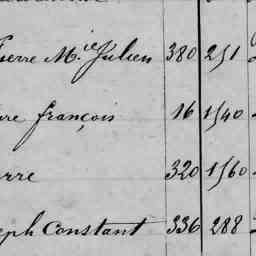 Pierre M.ie Julien 380 251
françois 16 1540
rre 320 1560
eph Constant 336 288